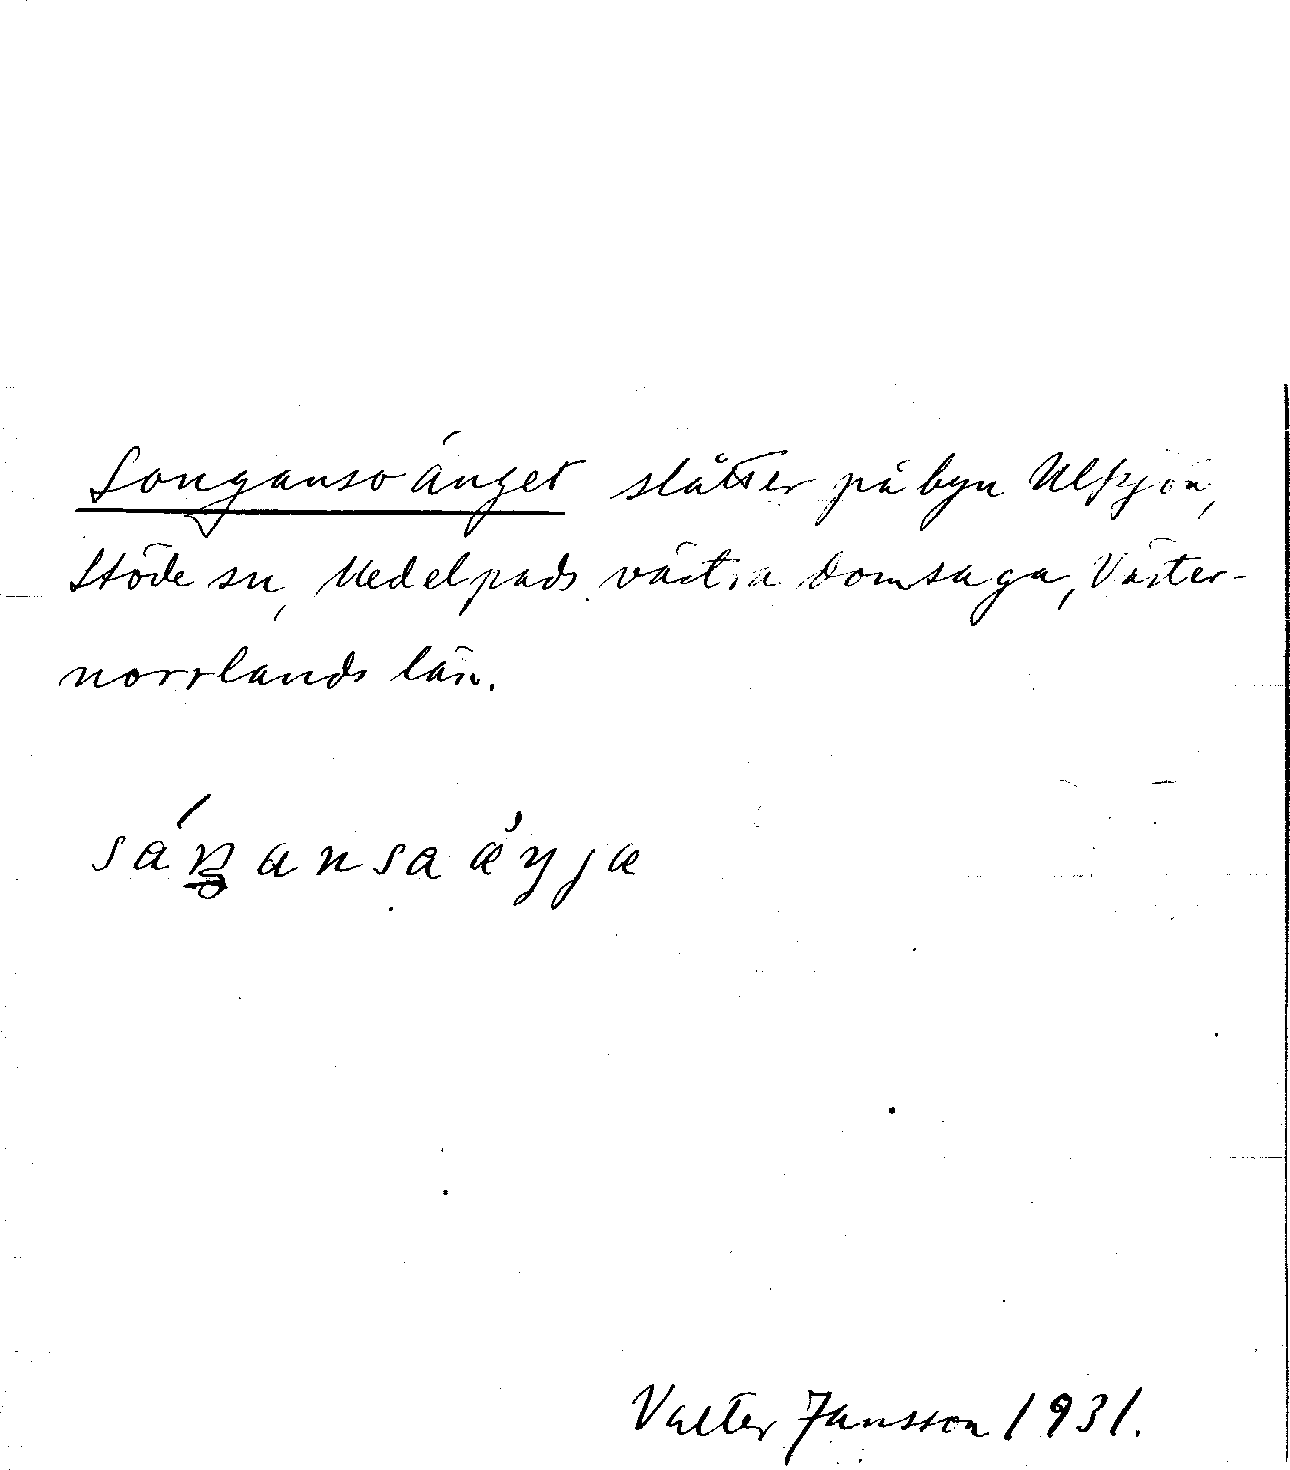 Songansoänget slåtter på byn Ulvsjön,
Stöde sn, Medelpads västra domsaga, Väster-
norrlands län.
Valter Jansson 1931.